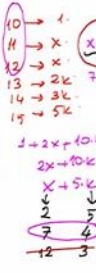 10 → 1.
11 → x.
12 → x.
13 → 2k
14 → 3k
15 → 5k
x
7
1+2x+10·k
2x+10·k
x+5·k
↓ ↓
2 5
7 4
12 3